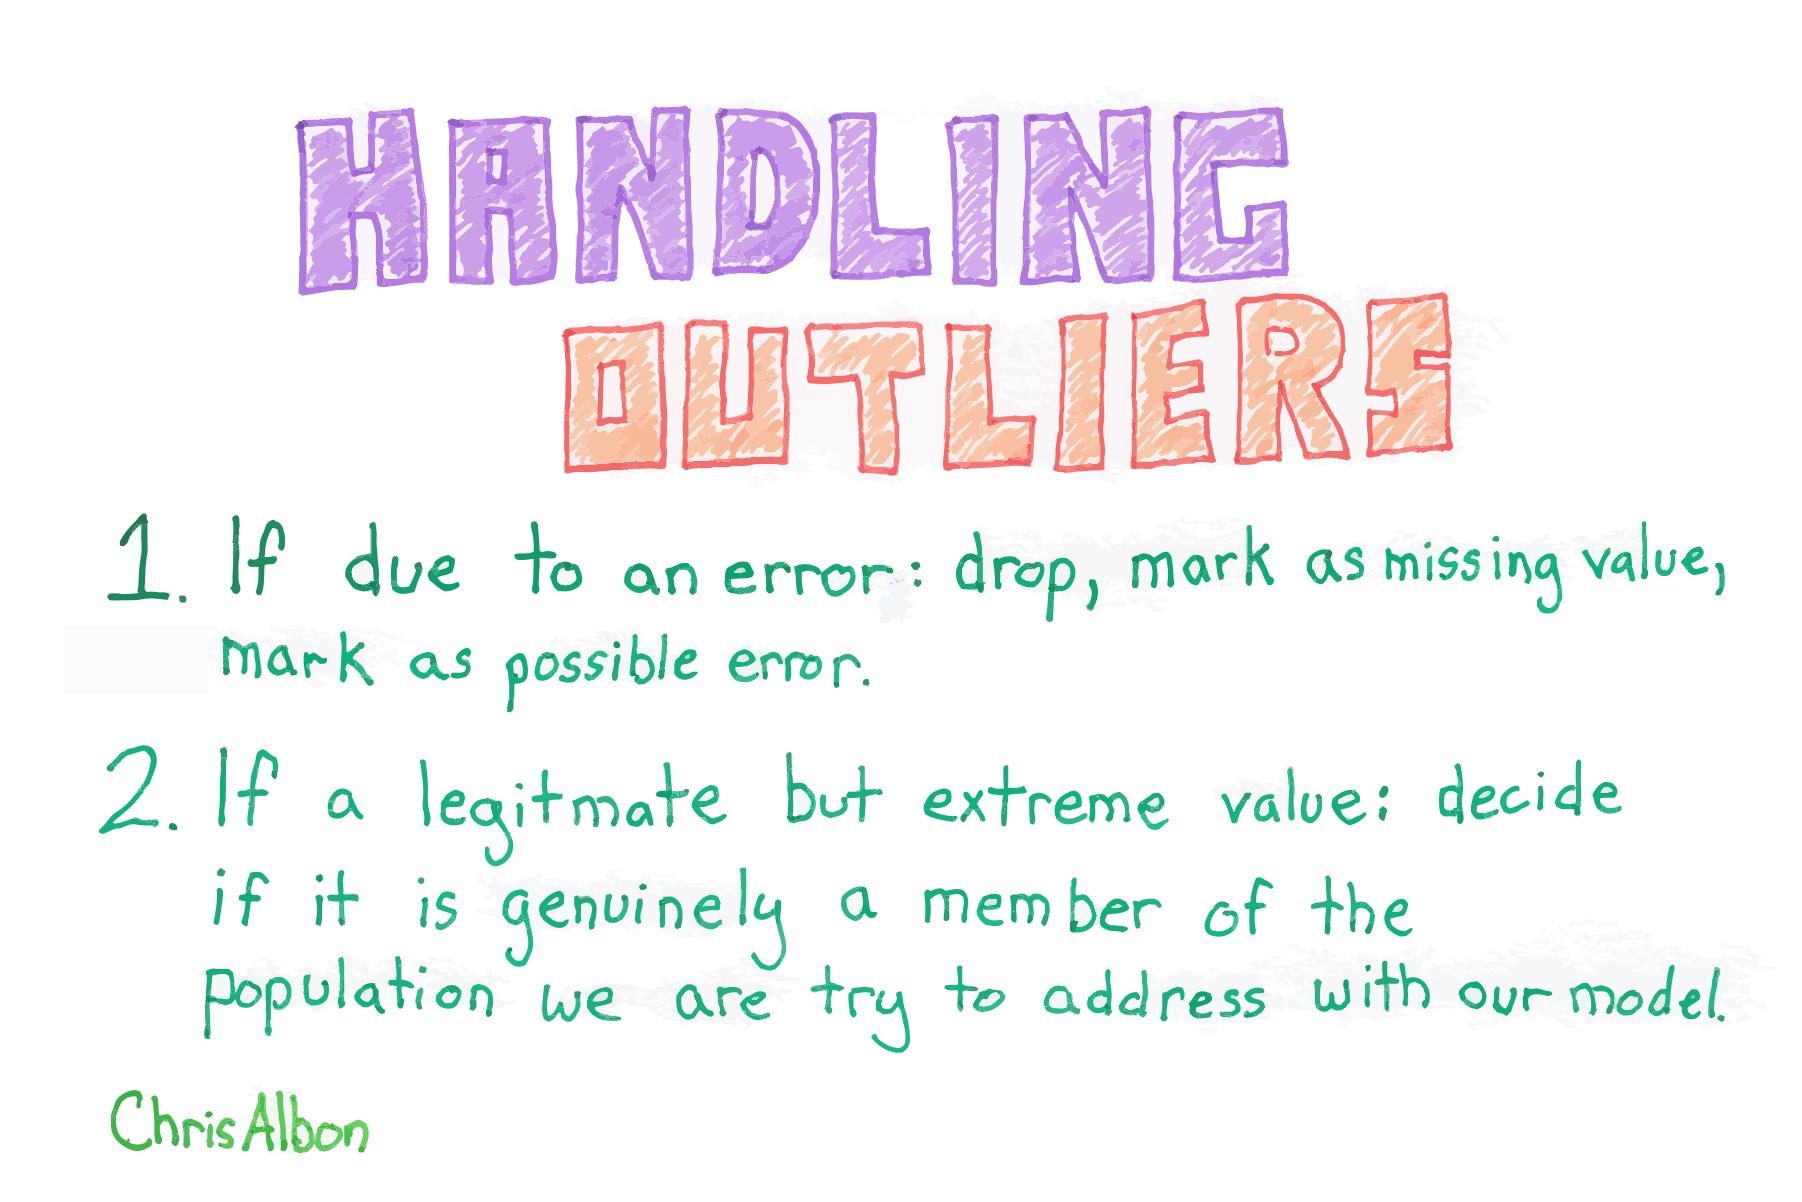 HANDLING
OUTLIERS
1. If due to an error: drop, mark as missing value,
mark as possible error.
2. If a legitmate but extreme value: decide
if it is genuinely a member of the
population we are try to address with our model.
Chris Albon